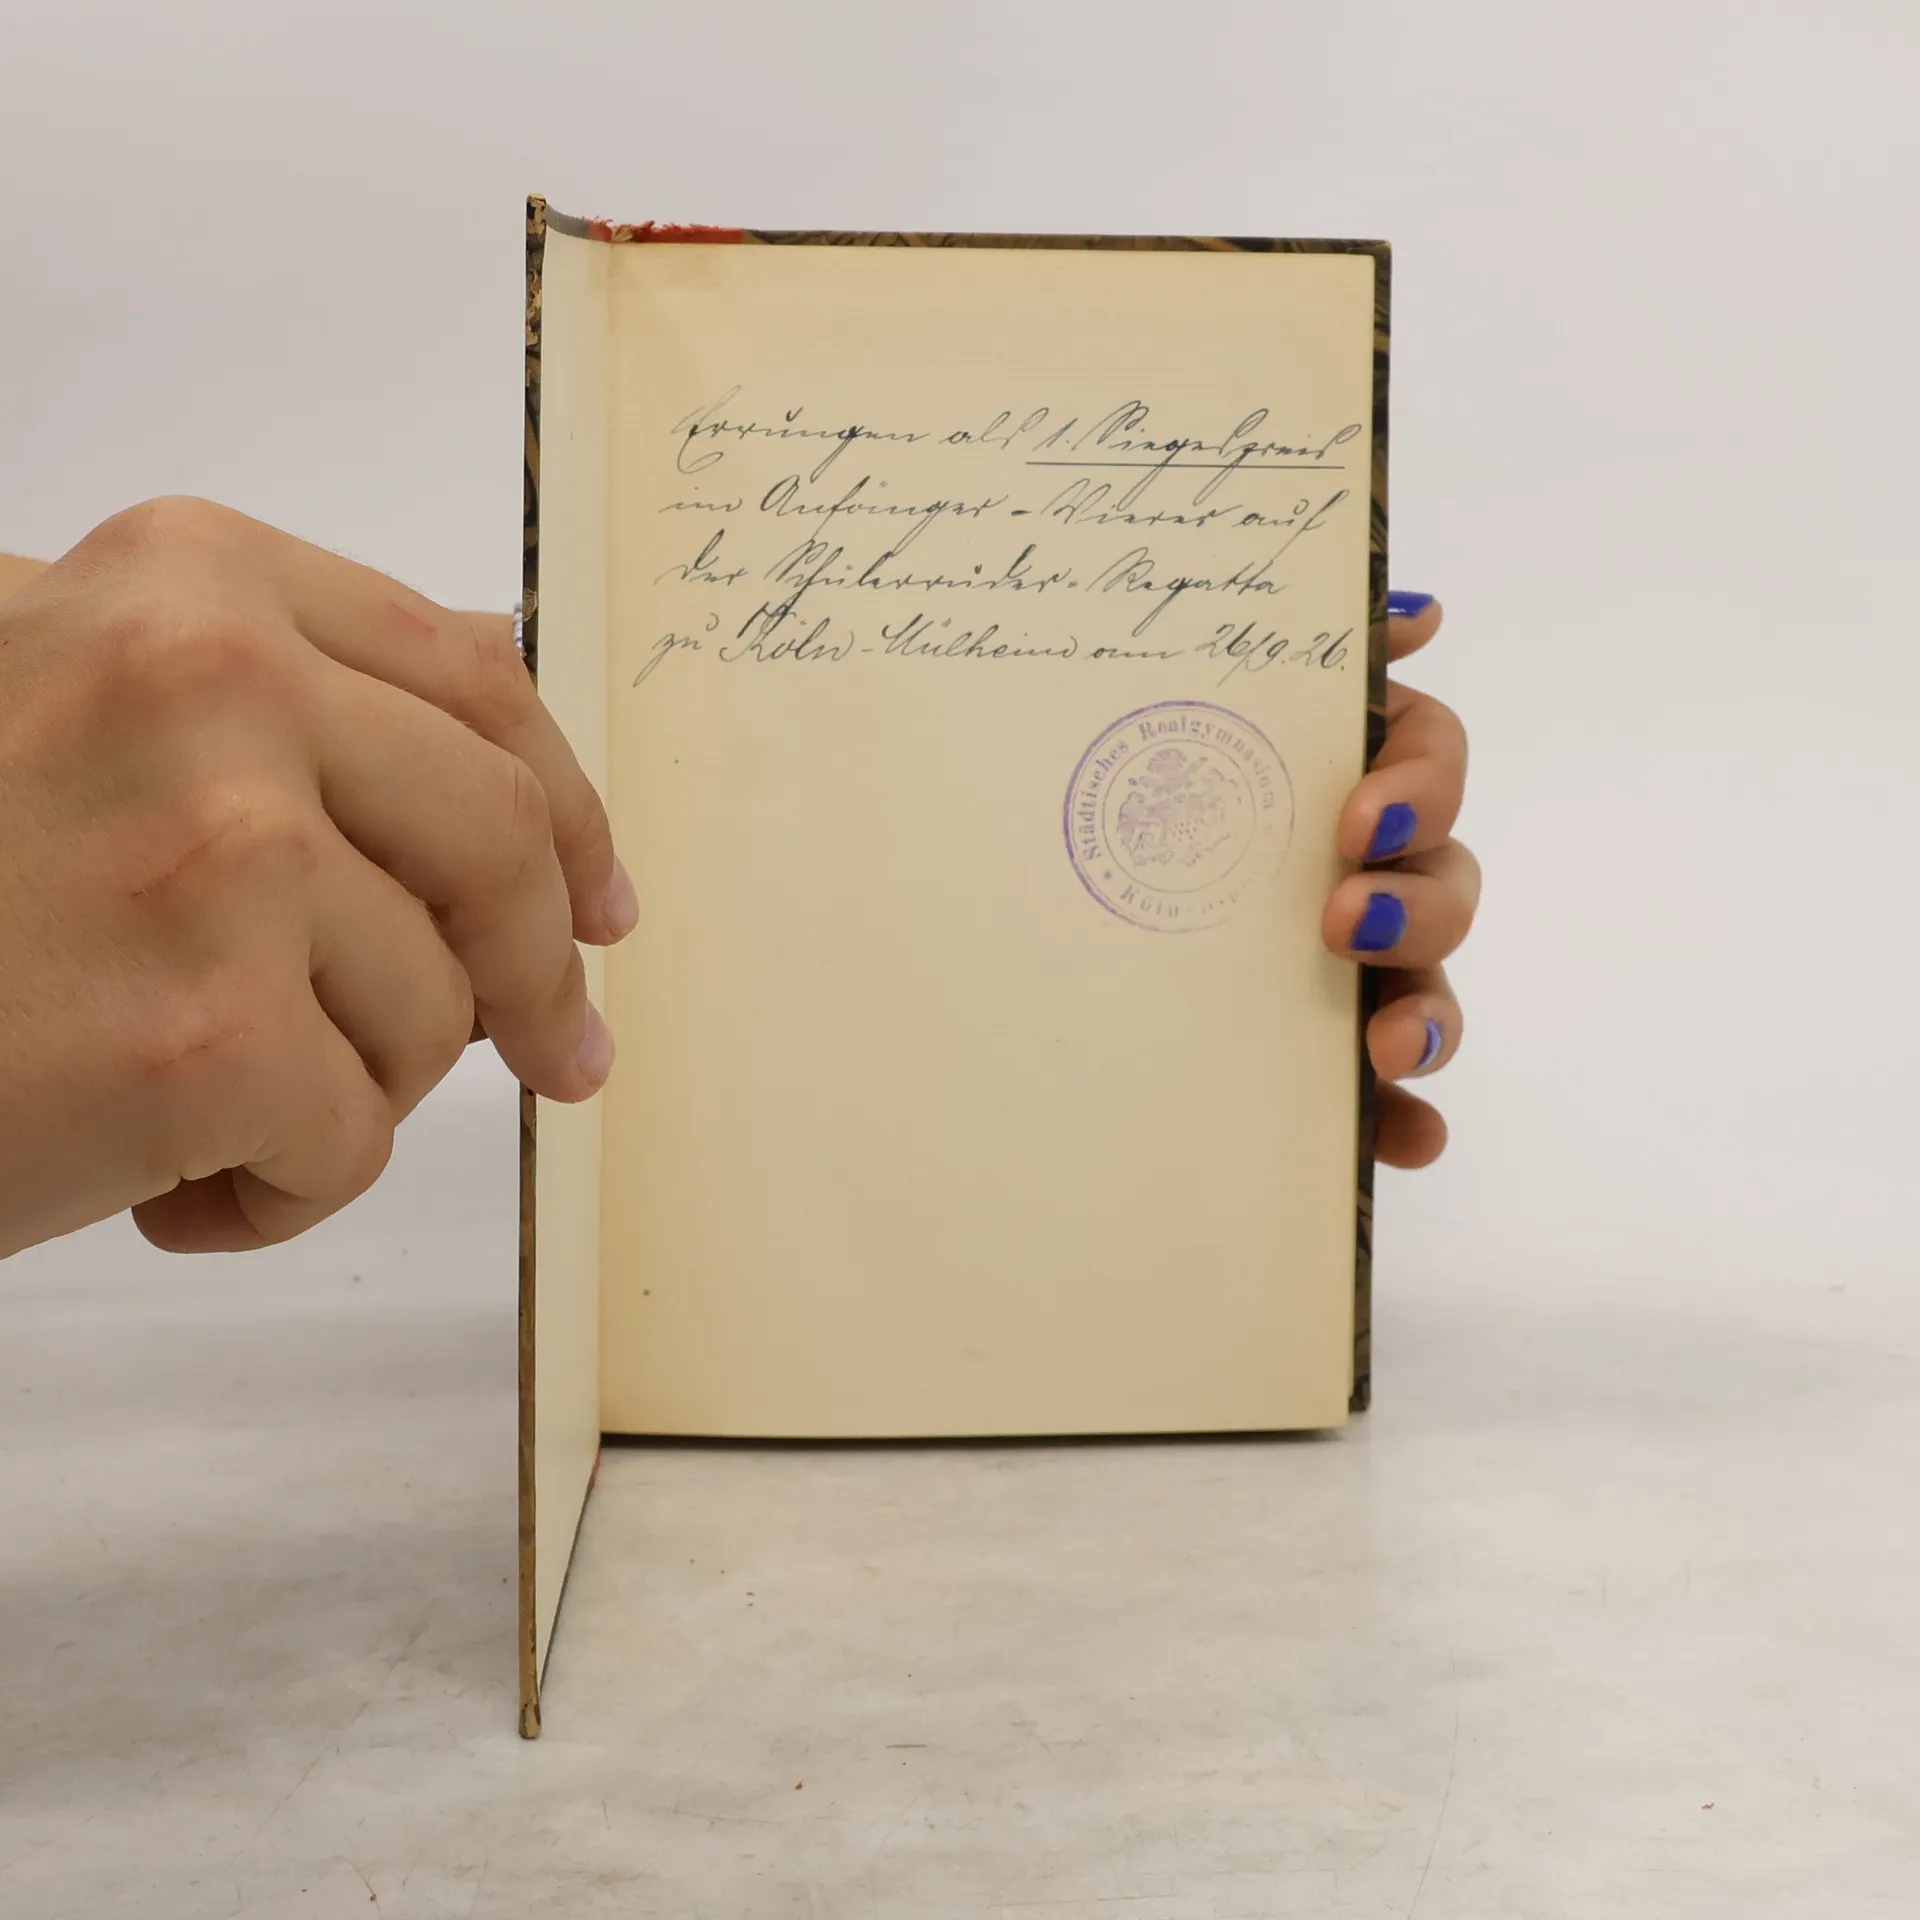 Errungen als 1. Siegespreis
im Anfänger-Vierer auf
der Schülerruder-Regatta
zu Köln-Mülheim am 26/9.26.
Städtisches Realgymnasium
* Köln-